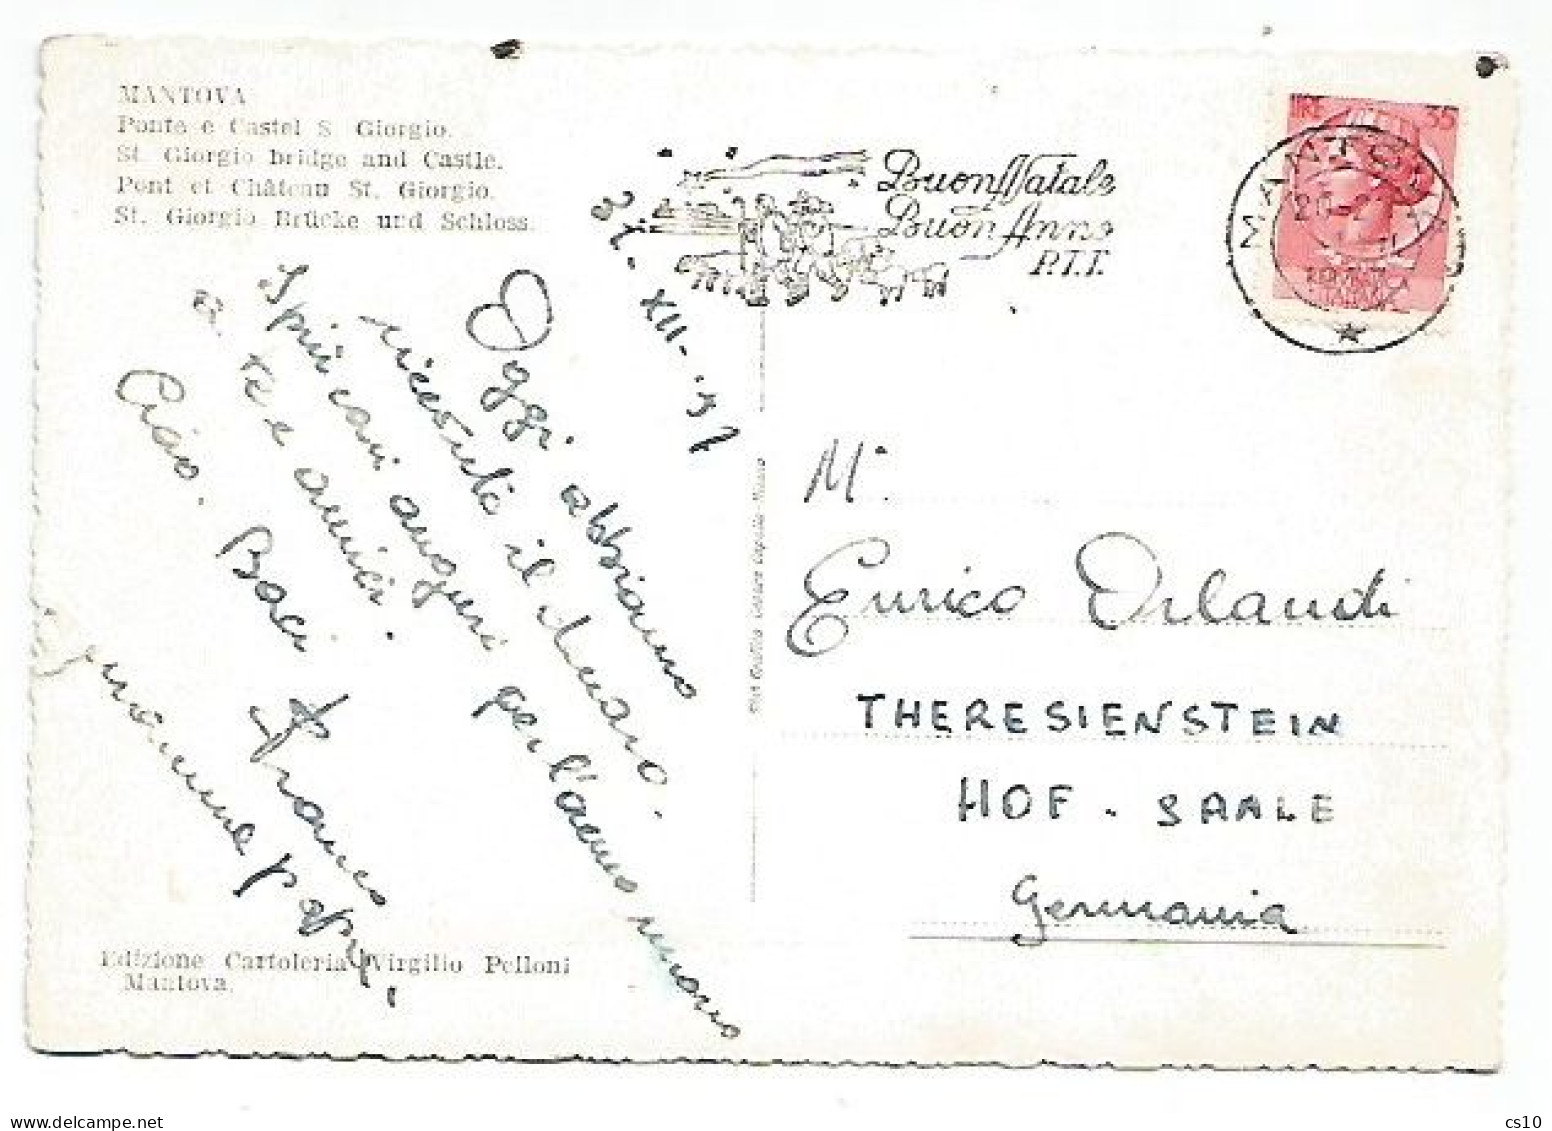 MANTOVA
Ponte e Castel S. Giorgio.
St. Giorgio bridge and Castle.
Pont et Château St. Giorgio.
St. Giorgio Brücke und Schloss.
Buon Natale
Buon Anno
P.T.T.
LIRE 35
MANTOVA
XII-
Oggi abbiamo
ricevuto il denaro.
I più cari auguri per l'anno nuovo
a te e amici.
Ciao. Baci
Franco
mamma e papà.
M.
Enrico Orlandi
THERESIENSTEIN
HOF - SAALE
Germania
Edizione Cartoleria Virgilio Pelloni
Mantova.
cs10
delcampe.net